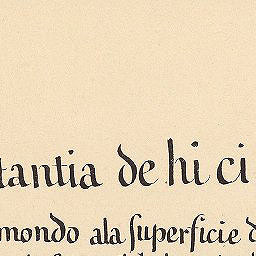 tantia de hi ci
mondo ala ſuperficie d